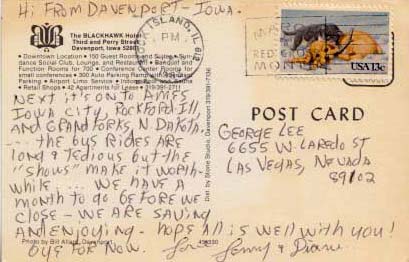 Hi From Davenport - Iowa.
The BLACKHAWK Hotel
Third and Perry Street
Davenport, Iowa 52801
• Downtown Location • 150 Guest Rooms and Suites •
dance Social Club, Lounge, and Restaurant • Banquet and
Function Rooms for 700 • Conference Center Rooms for
small conferences • 300 Auto Parking Ramp
Parking • Airport Limo Service • Indoor and Sauna
• Retail Shops • 42 Apartments for Lease • 319/391-2711
Next it's on to Ames
Iowa City, Rockford Ill
and Grand Forks N Dakota.
.... the bus rides are
long & tedious but the
"shows" make it worth-
while.... We have a
month to go before we
close - we are saving
and enjoying - hope all is well with you!
bye for now. Love Lenny & Diane
Photo by Bill Davenport
ROCK ISLAND, IL 612
PM
USA 13c
POST CARD
George Lee
6655 W. Laredo St
Las Vegas, Nevada
89102